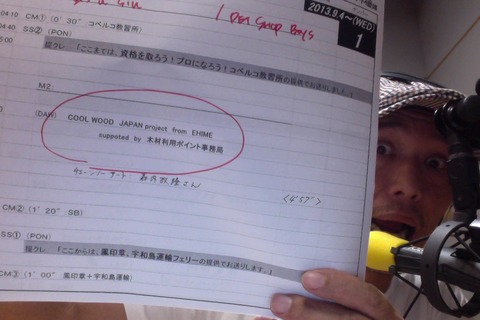 PET SHOP BOYS
2013.9.4～(WED)
1
04:10 CM①(0'30" コベルコ教習所)
04:40 SS②(PON)
5:00 提クレ「ここまでは、資格を取ろう!プロになろう!コベルコ教習所の提供でお送りしました。」
M2:
(DAW) COOL WOOD JAPAN project from EHIME
suppoted by 木材利用ポイント事務局
チェーンソーアート:
さん
<4'57">
CM②(1'20" SB)
SS①(PON)
提クレ「ここからは、風印章、宇和島運輸フェリーの提供でお送りします。」
CM③(1'00" 風印章+宇和島運輸)